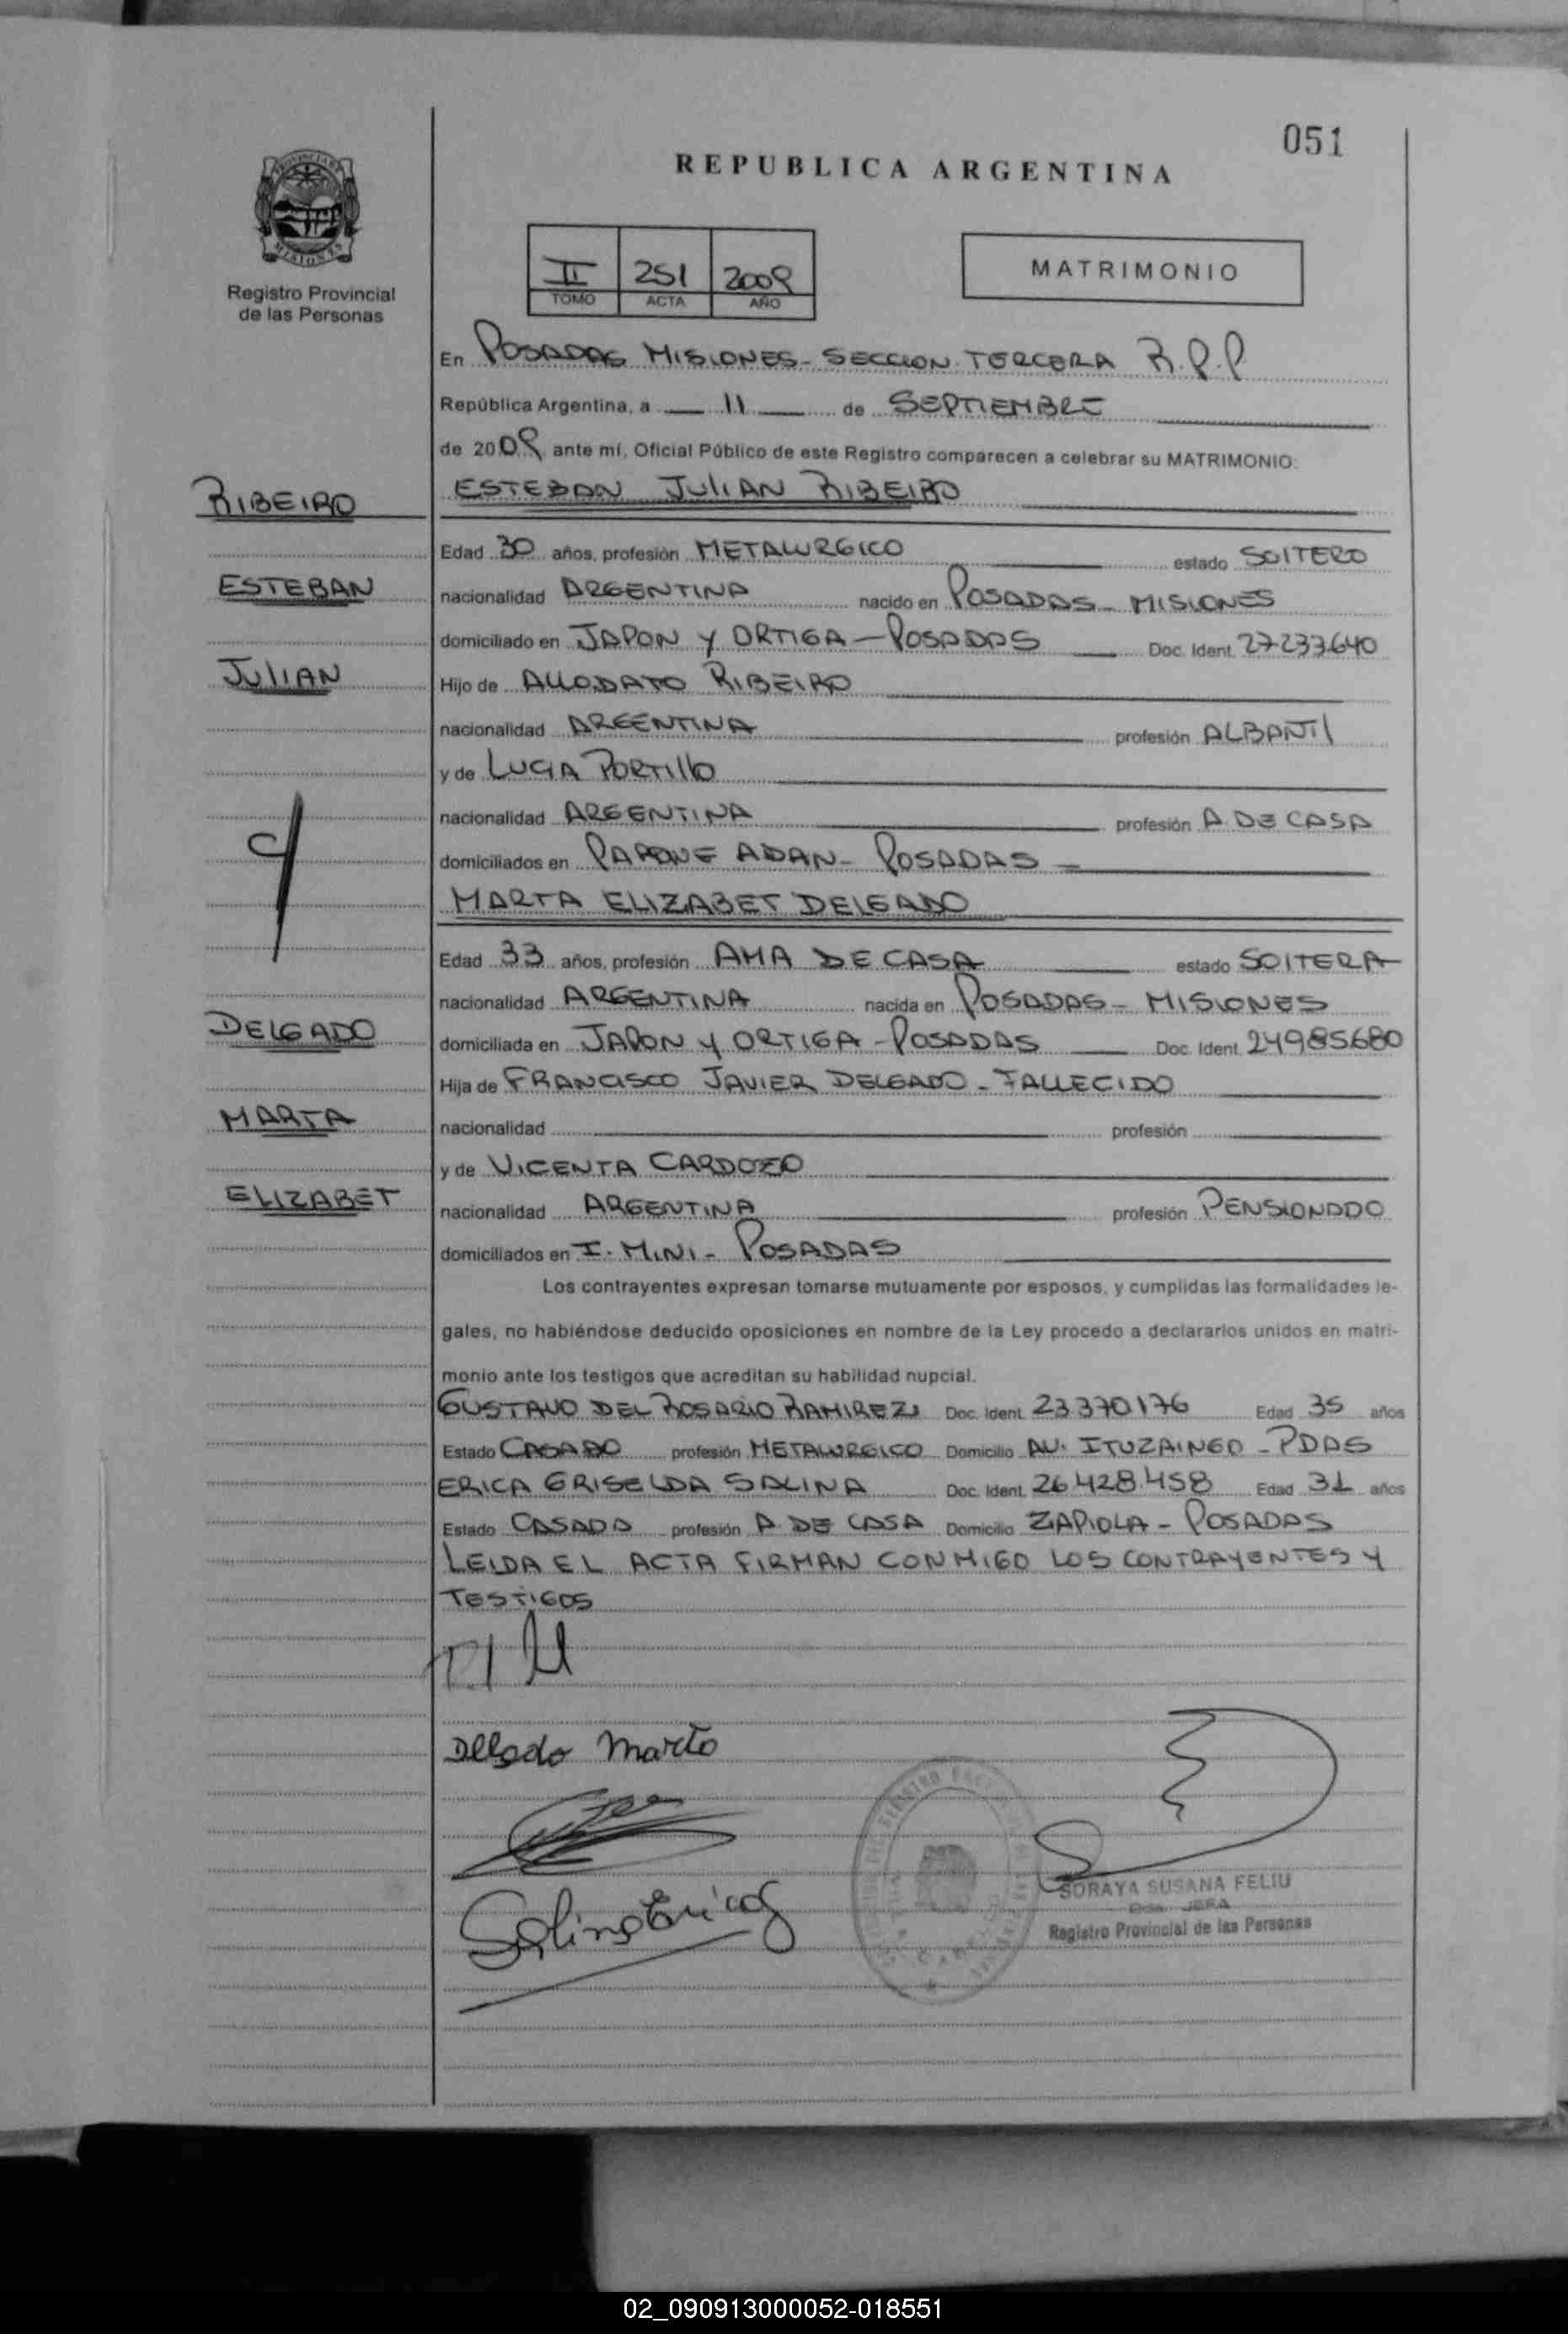 051
REPUBLICA ARGENTINA
PROVINCIA DE MISIONES
Registro Provincial
de las Personas
II 251 2009
TOMO ACTA AÑO
MATRIMONIO
En POSADAS MISIONES - SECCION TERCERA R.P.P
República Argentina, a 11 de SEPTIEMBRE
de 2009 ante mí, Oficial Público de este Registro comparecen a celebrar su MATRIMONIO:
ESTEBAN JULIAN RIBEIRO
RIBEIRO
ESTEBAN
JULIAN
Y
DELGADO
MARTA
ELIZABET
Edad 30 años, profesión METALURGICO estado SOLTERO
nacionalidad ARGENTINA nacido en POSADAS - MISIONES
domiciliado en JAPON Y ORTIGA - POSADAS Doc. Ident. 27233640
Hijo de ALLODATO RIBEIRO
nacionalidad ARGENTINA profesión ALBANIL
y de LUCIA PORTILLO
nacionalidad ARGENTINA profesión A DE CASA
domiciliados en PARQUE ADAN - POSADAS
MARTA ELIZABET DELGADO
Edad 33 años, profesión AMA DE CASA estado SOLTERA
nacionalidad ARGENTINA nacida en POSADAS - MISIONES
domiciliada en JAPON Y ORTIGA - POSADAS Doc. Ident. 24985680
Hija de FRANCISCO JAVIER DELGADO - FALLECIDO
nacionalidad profesión
y de VICENTA CARDOZO
nacionalidad ARGENTINA profesión PENSIONADO
domiciliados en I. MINI - POSADAS
Los contrayentes expresan tomarse mutuamente por esposos, y cumplidas las formalidades le-
gales, no habiéndose deducido oposiciones en nombre de la Ley procedo a declararlos unidos en matri-
monio ante los testigos que acreditan su habilidad nupcial.
GUSTAVO DEL ROSARIO RAMIREZ Doc. Ident. 23370176 Edad 35 años
Estado CASADO profesión METALURGICO Domicilio AV. ITUZAINGO - PDAS
ERICA GRISELDA SALINA Doc. Ident. 26.428.458 Edad 31 años
Estado CASADA profesión A. DE CASA Domicilio ZAPIOLA - POSADAS
LEIDA EL ACTA FIRMAN CONMIGO LOS CONTRAYENTES Y
TESTIGOS
Delgado Marta
Salina Erica G
SORAYA SUSANA FELIU
JEFA
Registro Provincial de las Personas
02_090913000052-018551